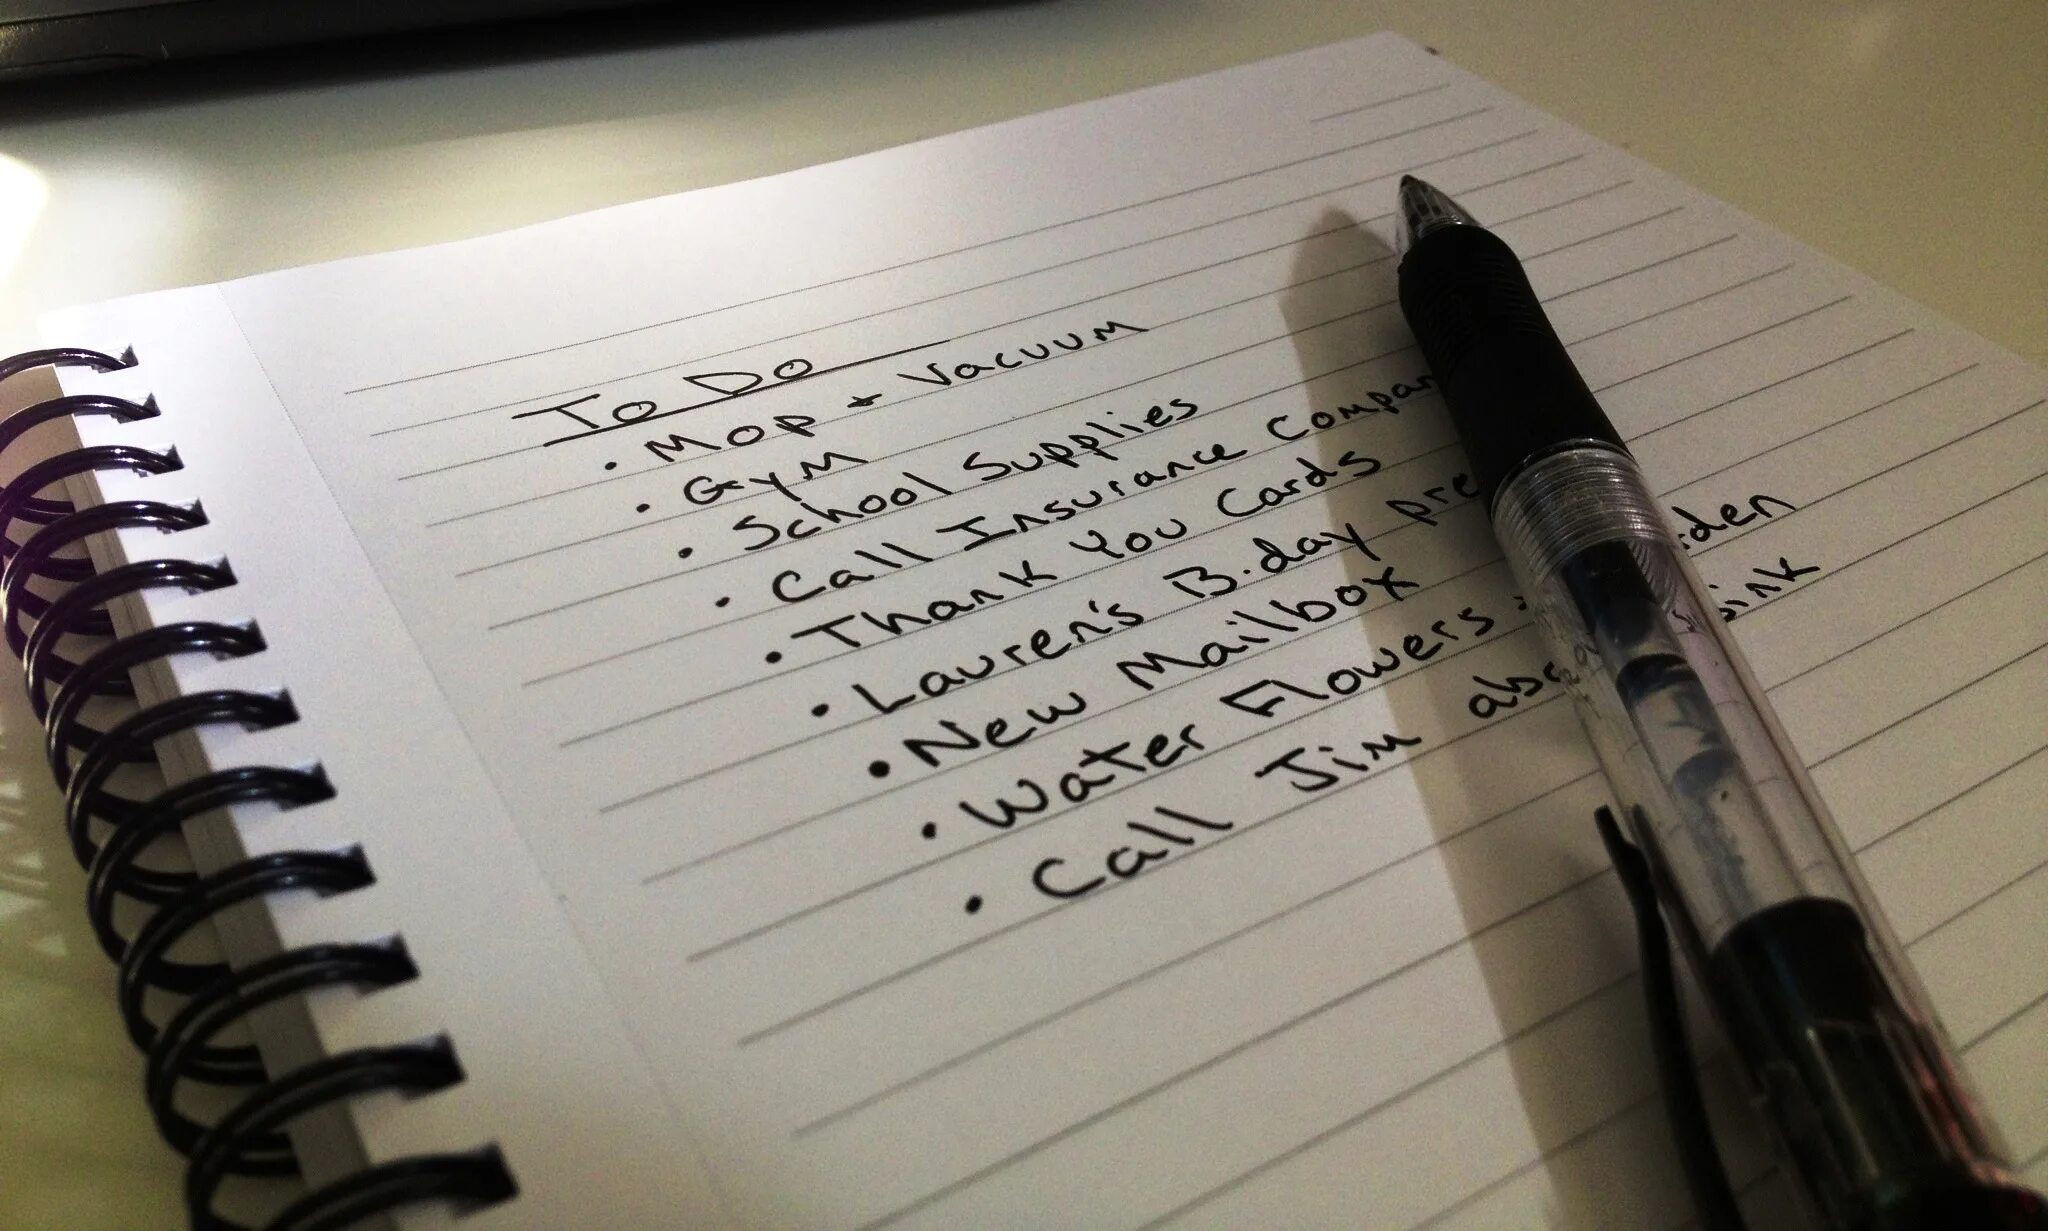 To Do
• Mop + Vacuum
• Gym
• School Supplies
• Call Insurance Compan
• Thank You Cards
• Lauren's B.day pre
• New Mailbox
• Water Flowers + den
• Call Jim abo sink